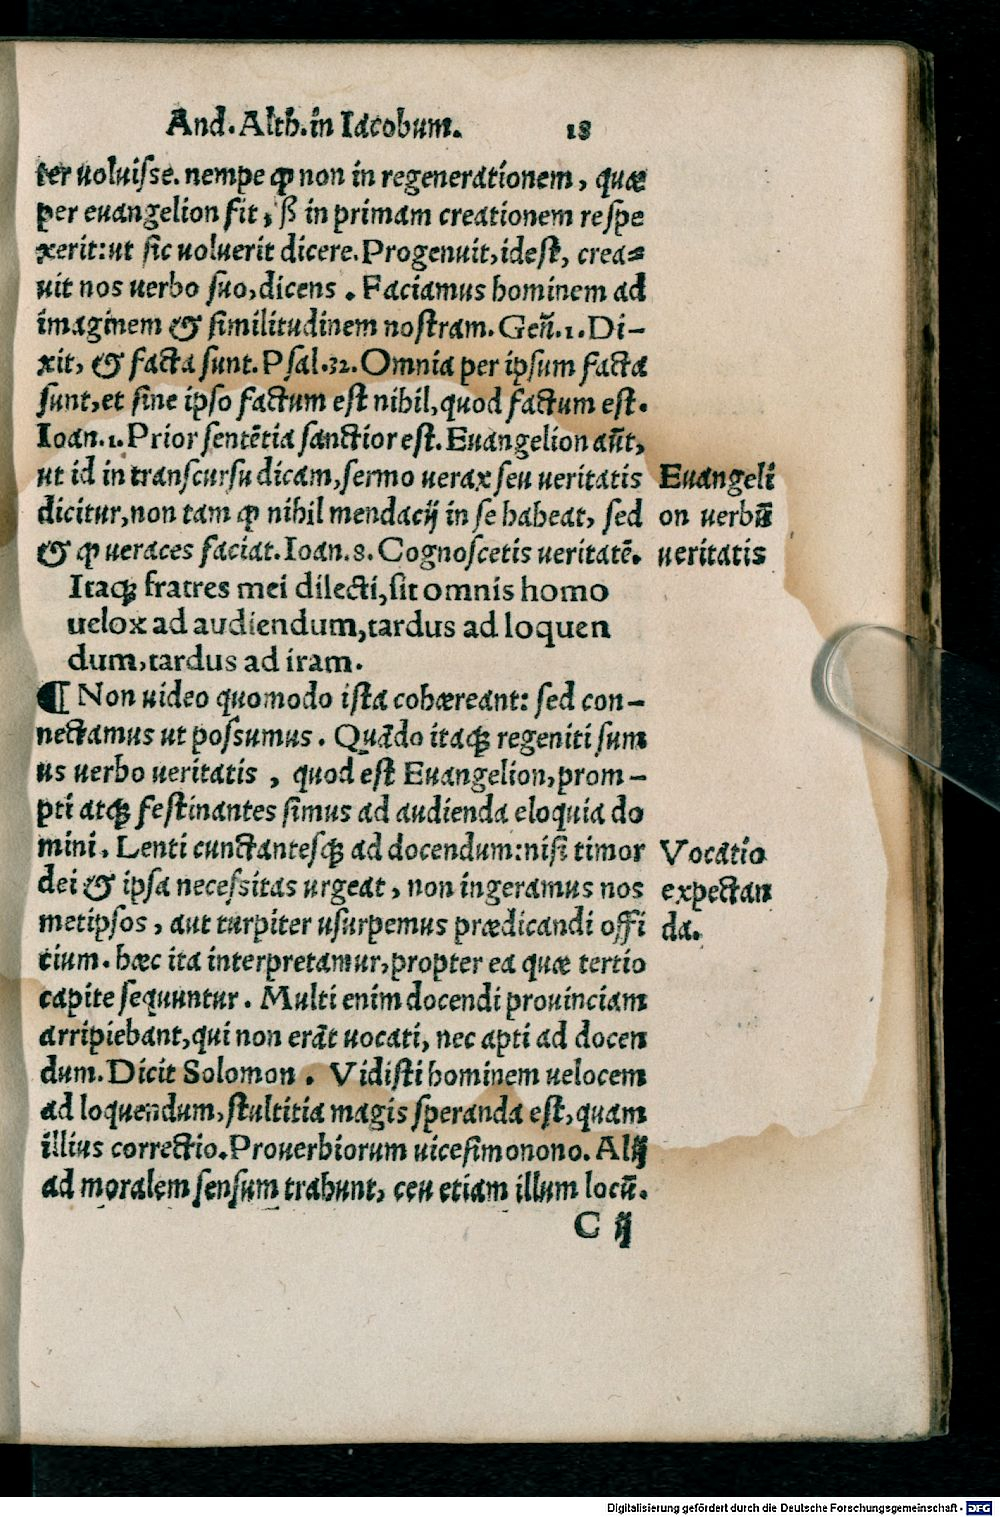 And. Alth. in Iacobum. 18
ter uoluisse. nempe ꝙ non in regenerationem, quæ
per euangelion fit, ß in primam creationem respe
xerit: ut sic uoluerit dicere. Progenuit, idest, crea=
uit nos uerbo suo, dicens. Faciamus hominem ad
imaginem & similitudinem nostram. Geñ. 1. Di-
xit, & facta sunt. Psal. 32. Omnia per ipsum facta
sunt, et sine ipso factum est nihil, quod factum est.
Ioan. 1. Prior sentẽtia sanctior est. Euangelion aũt,
ut id in transcursu dicam, sermo uerax seu ueritatis
dicitur, non tam ꝙ nihil mendacij in se habeat, sed
& ꝙ ueraces faciat. Ioan. 8. Cognoscetis ueritatẽ.
Euangeli
on uerbũ
ueritatis
Itaqꝫ fratres mei dilecti, sit omnis homo
uelox ad audiendum, tardus ad loquen
dum, tardus ad iram.
¶ Non uideo quomodo ista cohæreant: sed con-
nectamus ut possumus. Quãdo itaqꝫ regeniti sum
us uerbo ueritatis, quod est Euangelion, prom-
pti atqꝫ festinantes simus ad audienda eloquia do
mini. Lenti cunctantesqꝫ ad docendum: nisi timor
dei & ipsa necessitas urgeat, non ingeramus nos
metipsos, aut turpiter usurpemus prædicandi offi
tium. hæc ita interpretamur, propter ea quæ tertio
capite sequuntur. Multi enim docendi prouinciam
arripiebant, qui non erãt uocati, nec apti ad docen
dum. Dicit Solomon. Vidisti hominem uelocem
ad loquendum, stultitia magis speranda est, quam
illius correctio. Prouerbiorum uicesimonono. Alij
ad moralem sensum trahunt, ceu etiam illum locũ.
Vocatio
expectan
da.
C ij
Digitalisierung gefördert durch die Deutsche Forschungsgemeinschaft - DFG